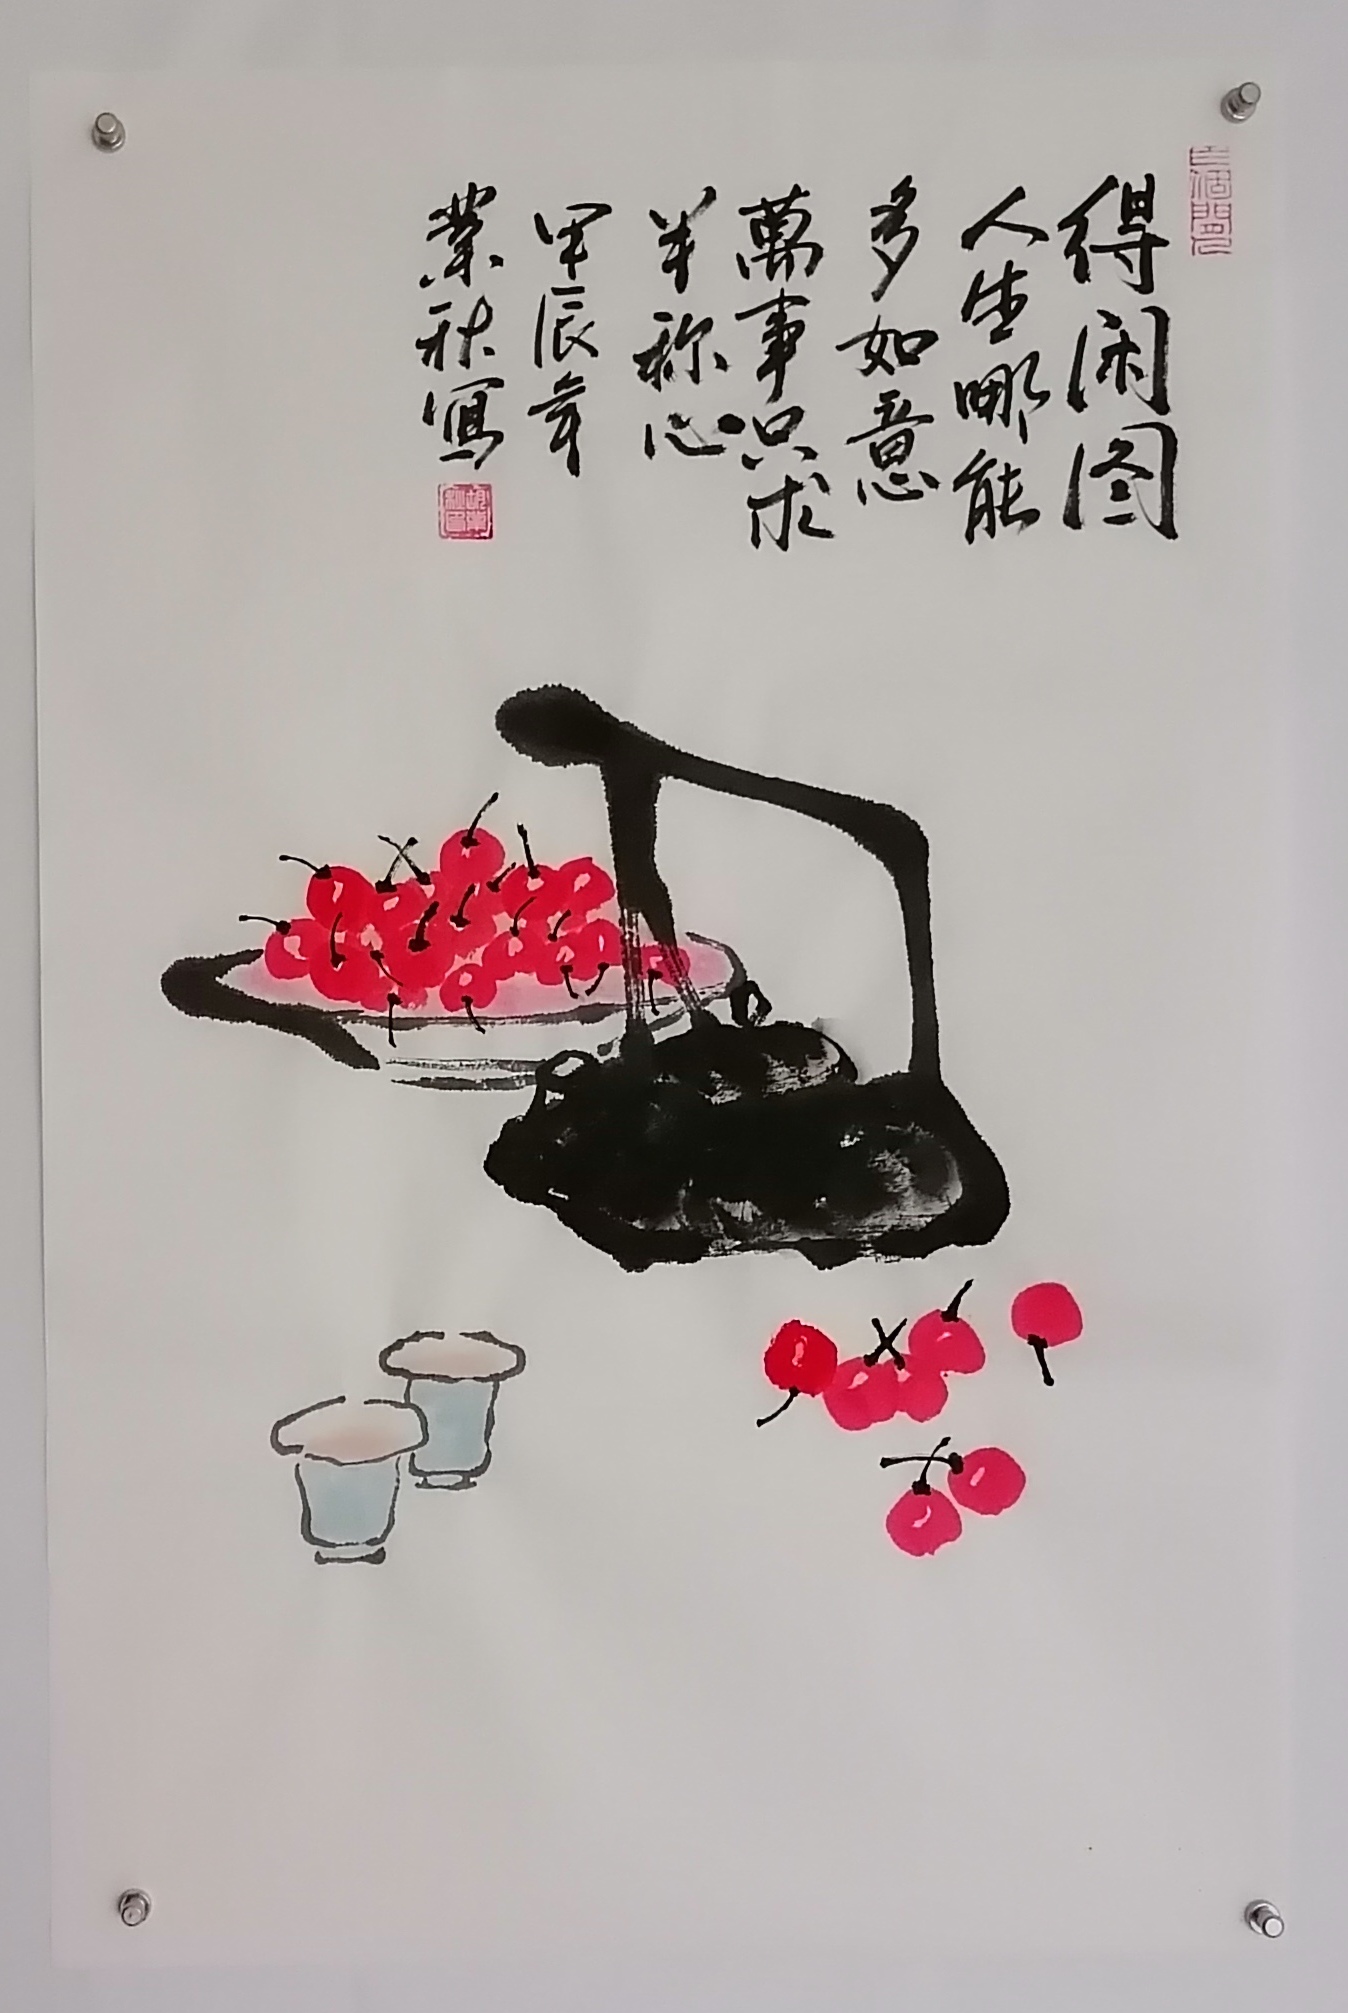 得闲图
人生哪能
多如意
萬事只求
半称心
甲辰年
業秋寫